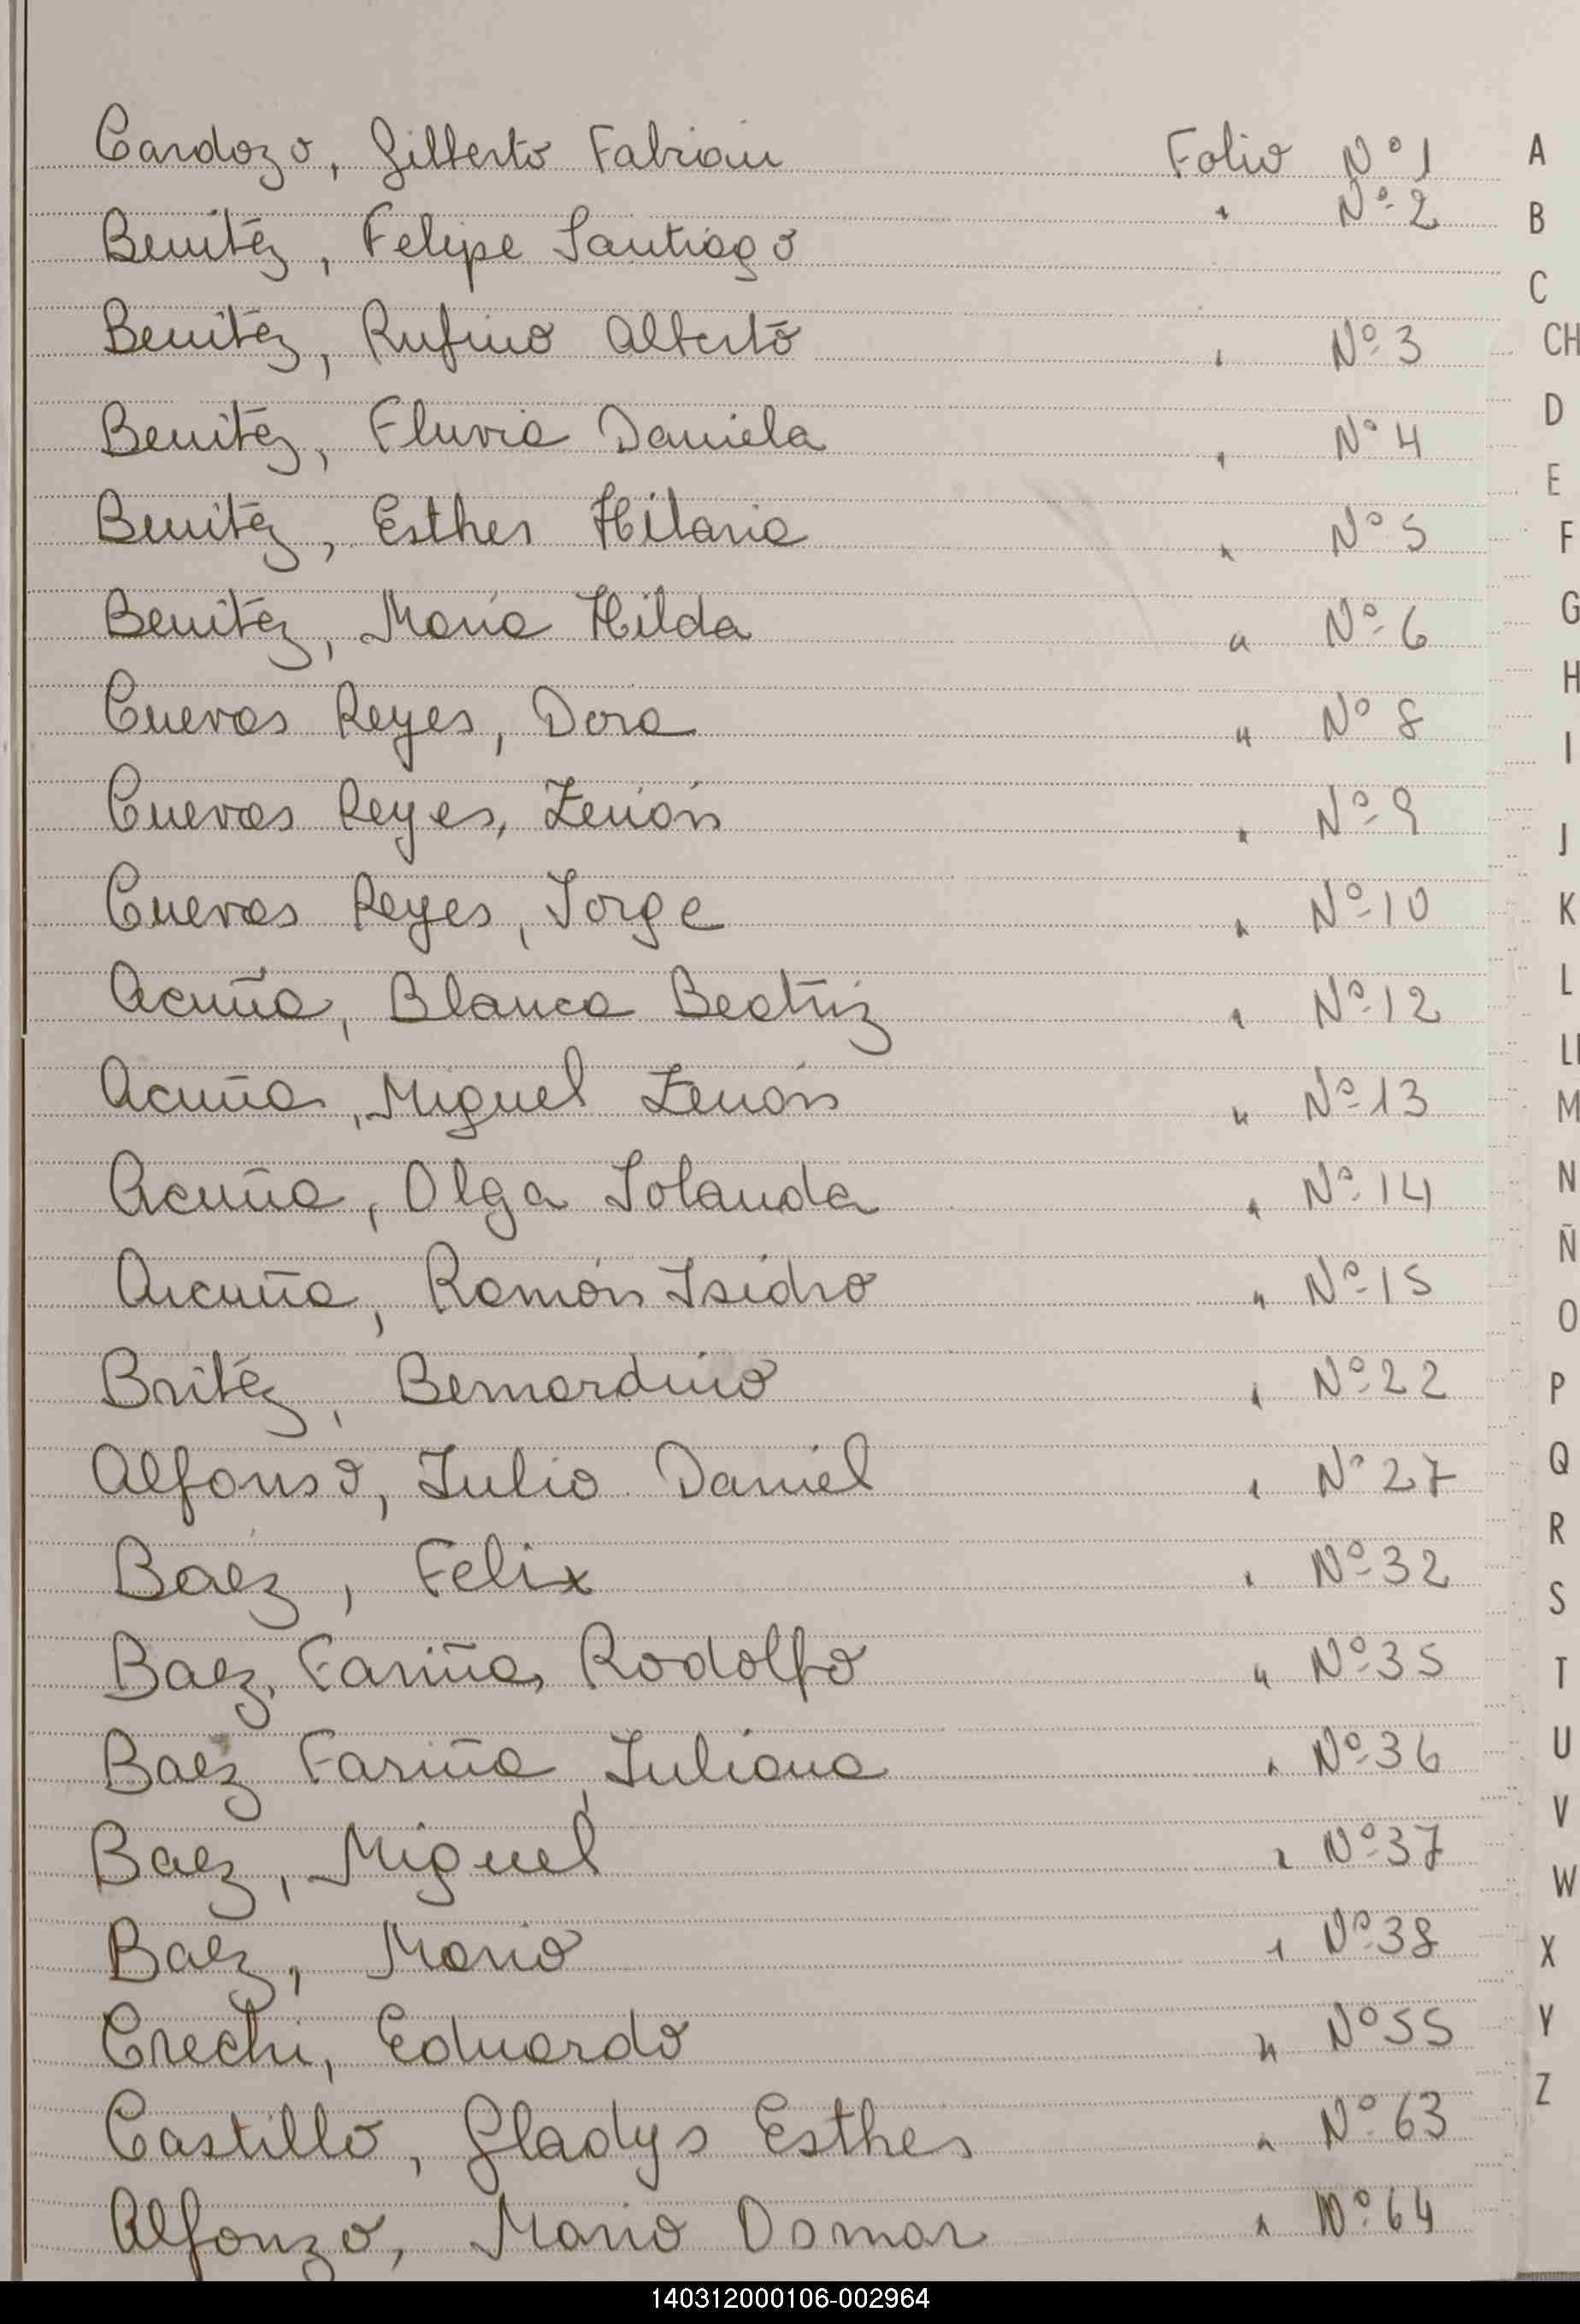 Cardozo, Gilberto Fabian Folio Nº 1
Benitéz, Felipe Santiago " Nº 2
Benitéz, Rufino Alberto " Nº 3
Benitéz, Fluvia Daniela " Nº 4
Benitéz, Esther Hilaria " Nº 5
Benitéz, María Hilda " Nº 6
Cuevas Reyes, Dora " Nº 8
Cuevas Reyes, Zenón " Nº 9
Cuevas Reyes, Jorge " Nº 10
Acuña, Blanca Beatriz " Nº 12
Acuña, Miguel Zenón " Nº 13
Acuña, Olga Iolanda " Nº 14
Acuña, Ramón Isidro " Nº 15
Britéz, Bernardino " Nº 22
Alfonso, Julio Daniel " Nº 27
Baez, Felix " Nº 32
Baez, Fariña, Rodolfo " Nº 35
Baez Fariña, Juliana " Nº 36
Baez, Miguel " Nº 37
Baez, Mario " Nº 38
Crechi, Eduardo " Nº 55
Castillo, Gladys Esther " Nº 63
Alfonzo, Mario Osmar " Nº 64
A
B
C
CH
D
E
F
G
H
I
J
K
L
Ll
M
N
Ñ
O
P
Q
R
S
T
U
V
W
X
Y
Z
140312000106-002964